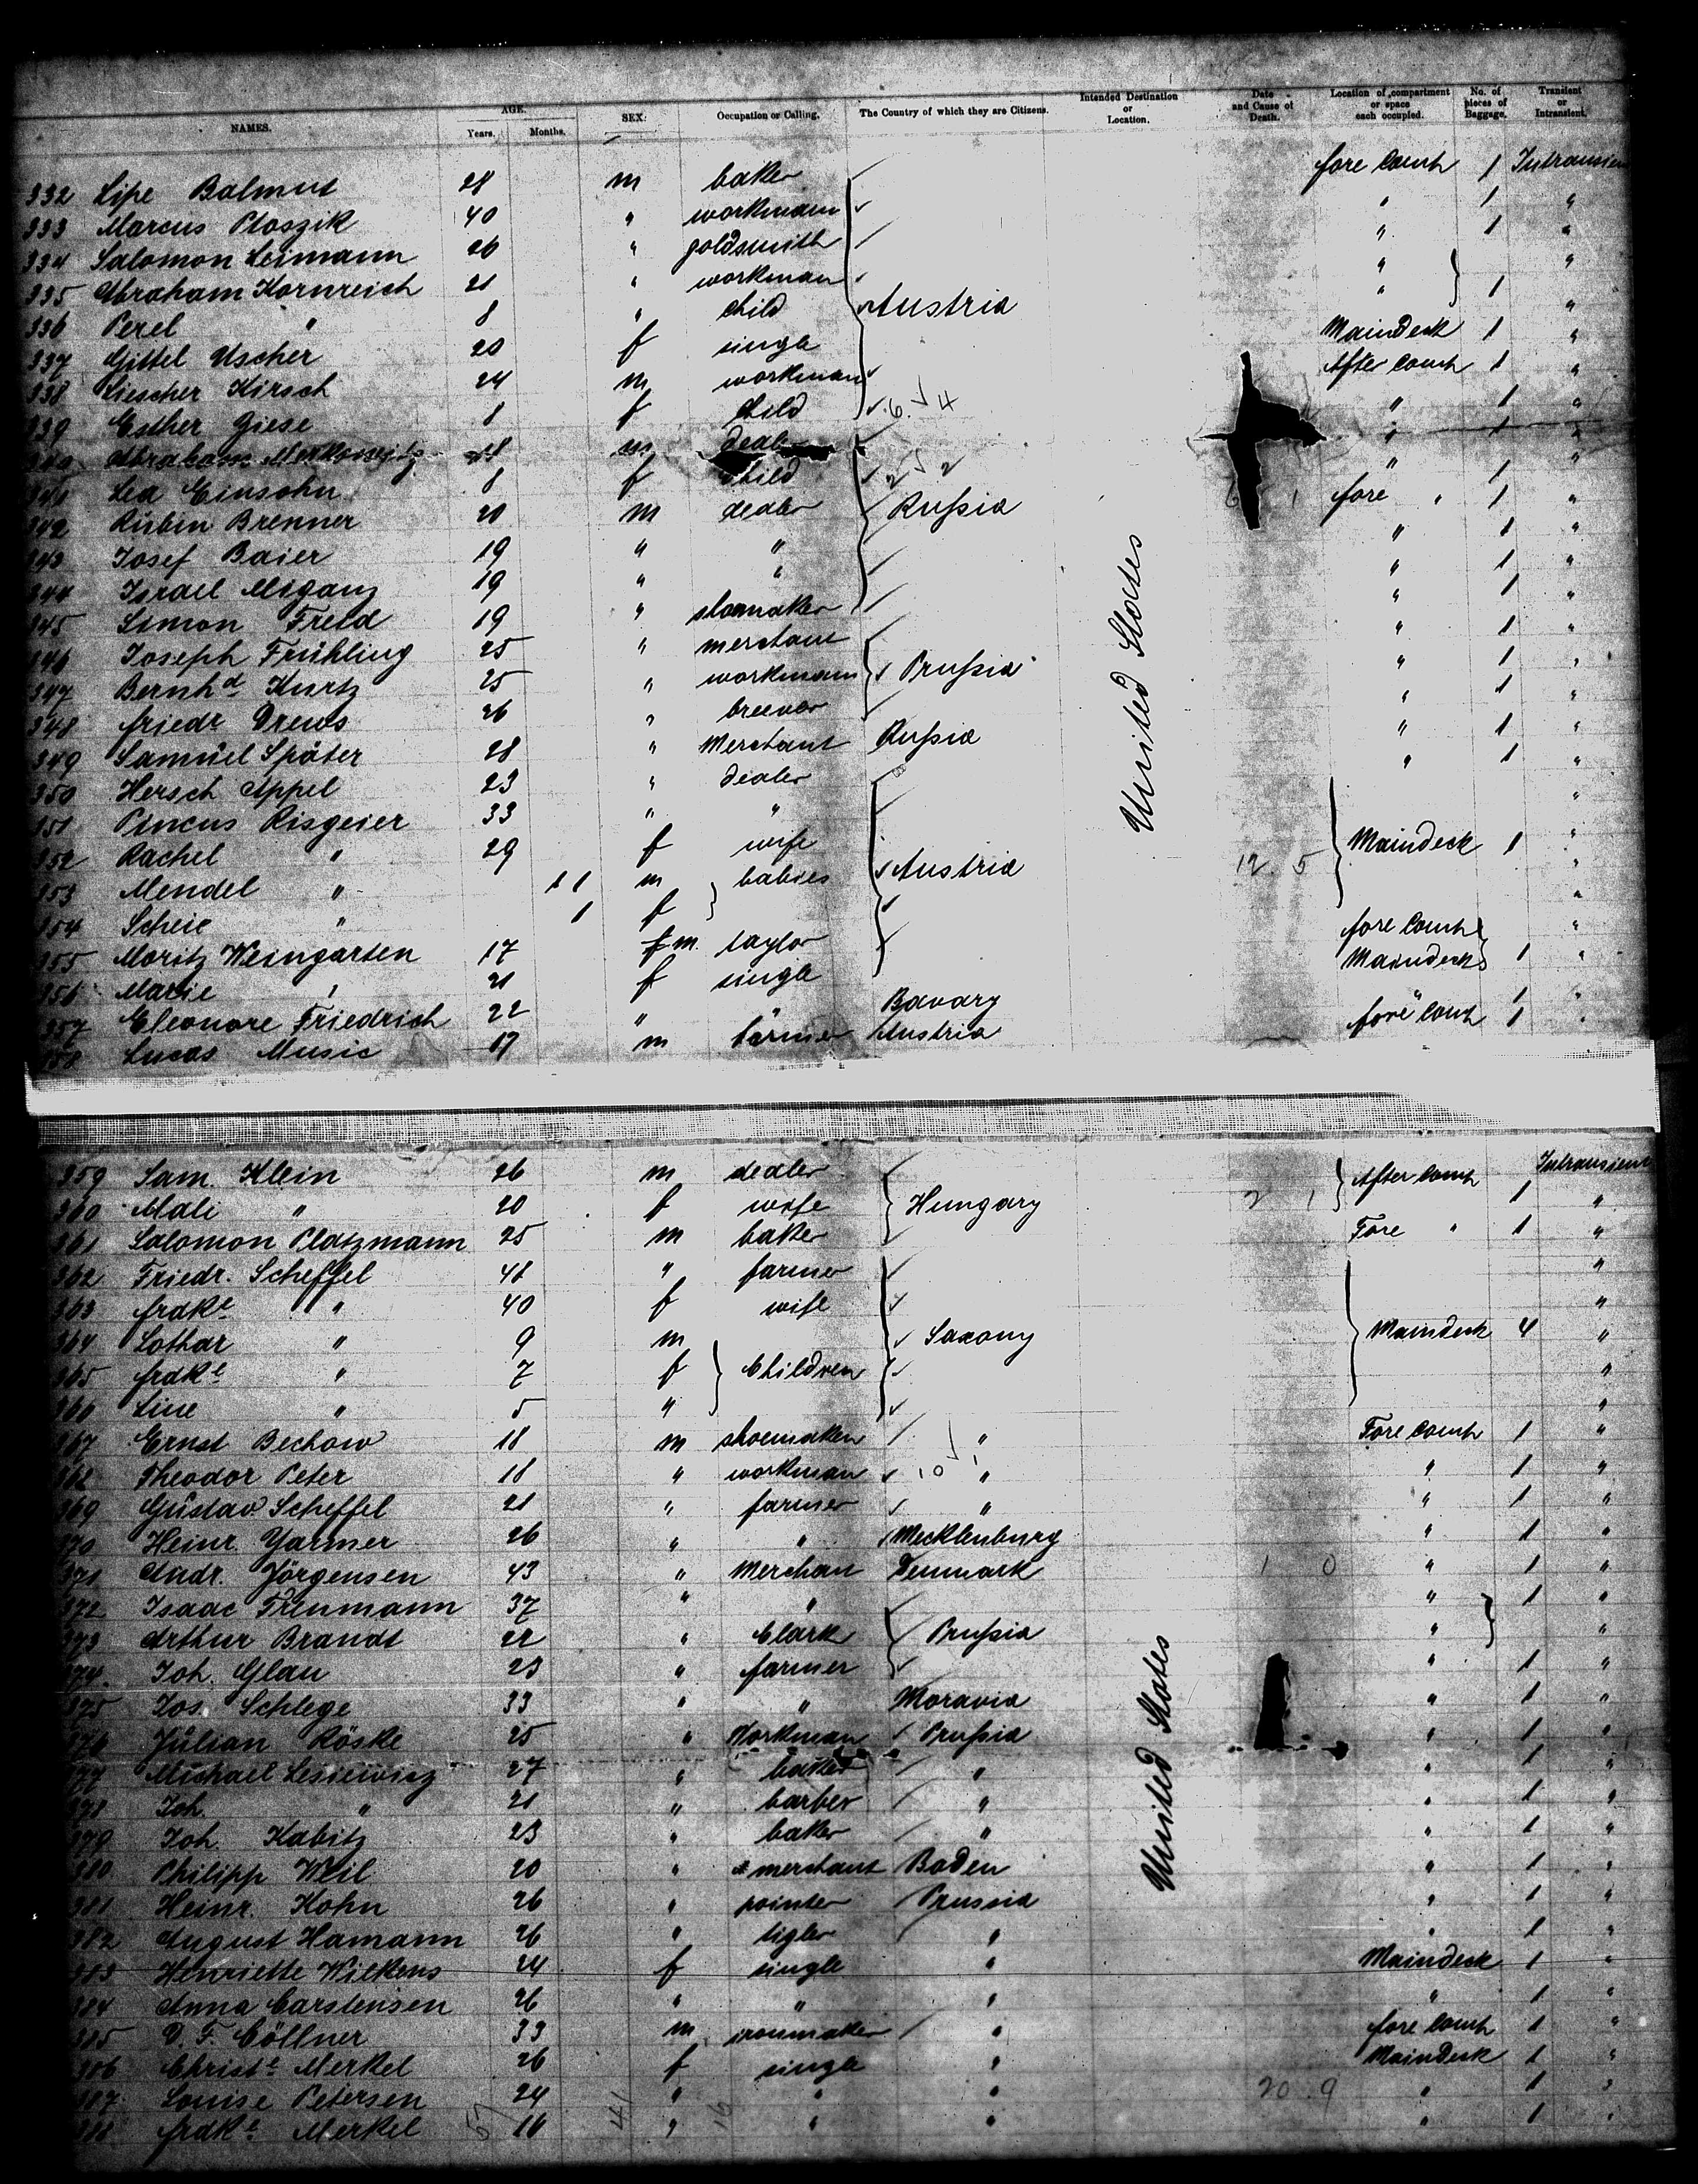 NAMES. AGE. Years. Months. SEX. Occupation or Calling. The Country of which they are Citizens. Intended Destination or Location. Date and Cause of Death. Location of compartment or space each occupied. No. of pieces of Baggage. Transient or Intransient.
332 Lipe Balmut 28 m baker fore Comp 1 Intransien
333 Marcus Ploszik 40 " workmann " 1 "
334 Salomon Leimann 26 " goldsmith " 1 "
335 Abraham Kornreich 21 " workman " "
336 Perel " 8 " child Austria " 1 "
337 Gittel Uscher 20 f single Maindeck 1 "
338 Liescher Hirsch 24 m workman After Comp 1 "
339 Esther Giese 8 f child 6 4 " 1 "
340 Abraham Merkowitz m dealer " 1 "
341 Lea Einsohn 8 f child 2 2 " 1 "
342 Rubin Brenner 20 m dealer Rußia 6 1 fore " 1 "
343 Josef Baier 19 " " " 1 "
344 Israel Misganz 19 " " " 1 "
345 Simon Freld 19 " shoemaker " 1 "
346 Joseph Frühling 25 " merchant " 1 "
347 Bernhd Kurtz 25 " workmann Prußia " 1 "
348 friedr Drews 26 " breewer " 1 "
349 Samüel Später 28 " Merchant Rußia " 1 "
350 Hersch Appel 23 " dealer " 1 "
351 Pincus Risgeier 33 " " "
352 Rachel " 29 f wife Maindeck 1 "
353 Mendel " 11 m babies Austria 12 5 "
354 Scheie " 1 f "
355 Moritz Weingarten 17 f m. taylor fore Comp "
356 Marie " 21 f single Maindeck 1 "
357 Eleonore Friedrich 22 " Bavary " 1 "
358 Lucas Music 17 m farmer Austria fore Comp 1 "
United States
359 Sam. Klein 26 m dealer After Comp Intransient
360 Mali " 20 f wife Hungary 2 1 1 "
361 Salomon Platzmann 25 m baker Fore " 1 "
362 Friedr. Scheffel 48 " farmer "
363 frdke " 40 f wife "
364 Lothar " 9 m Saxony Maindeck 4 "
365 frdke " 7 f Children "
366 Line " 5 " "
367 Ernst Bechow 18 m shoemaker " Fore Comp 1 "
368 Theodor Peter 18 " workman 10 1 " " 1 "
369 Güstav Scheffel 21 " farmer " " 1 "
370 Heinr. Yarmer 26 " " Mecklenburg " 1 "
371 Andr. Jörgensen 43 " Merchan Denmark 1 0 " 1 "
372 Isaac Frinmann 37 " " " 1 "
373 Arthur Brandt 22 " Clark Prußia " "
374. Joh. Glau 23 " farmer " 1 "
375 Jos. Schlege 33 " " Moravia " 1 "
376 Jülian Röske 25 " Workman Prußia " 1 "
377 Michael Lesiewicz 27 " baker " " 1 "
378 Joh. " 21 " barber " " 1 "
379 Joh. Kabitz 23 " baker " " 1 "
380 Philipp Weil 20 " merchant Baden " 1 "
381 Heinr. Kohn 26 " pointer Prussia " 1 "
382 August Hamann 26 " tigler " " 1 "
383 Henriette Wilkens 24 f single " Maindeck 1 "
384 Anna Carstensen 26 " " " " 1 "
385 D. F. Cöllner 33 m ironmaker " fore Comp 1 "
386 Christe Merkel 26 f single " Maindeck 1 "
387 Louise Petersen 24 " " " 20 9 " 1 "
388 frdke Merkel 16 " " " " 1 "
United States
57 41 16